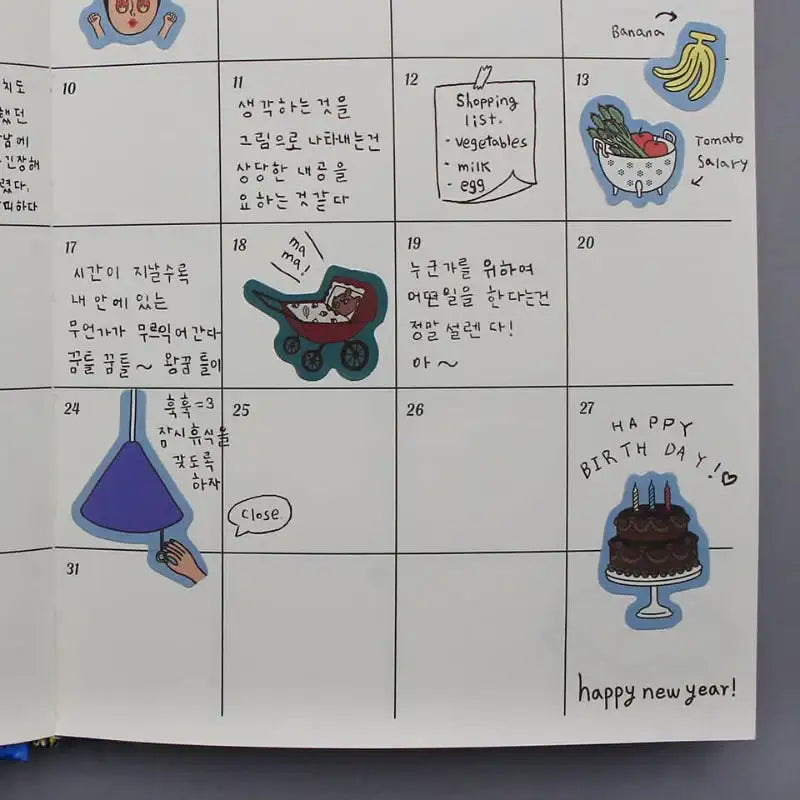 Banana
치도
했던
남에
긴장해
렸다.
피하다
10
11
생각하는것을
그림으로 나타내는건
상당한 내공을
요하는것같다
12
Shopping
list.
- vegetables
- milk
- egg
13
Tomato
Salary
17
시간이 지날수록
내 안에 있는
무언가가 무르익어간다
꿈틀 꿈틀~ 왕꿈틀이
18
ma
ma!
19
누군가를 위하여
어떤일을 한다는건
정말 설렌다!
아~
20
24
훅훅=3
잠시휴식을
갖도록
하자
25
close.
26
27
HAPPY
BIRTH DAY!♡
31
happy new year!